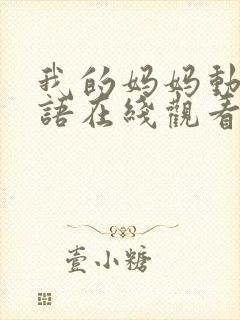 我的妈妈動
語在綫觀看
壹小糖